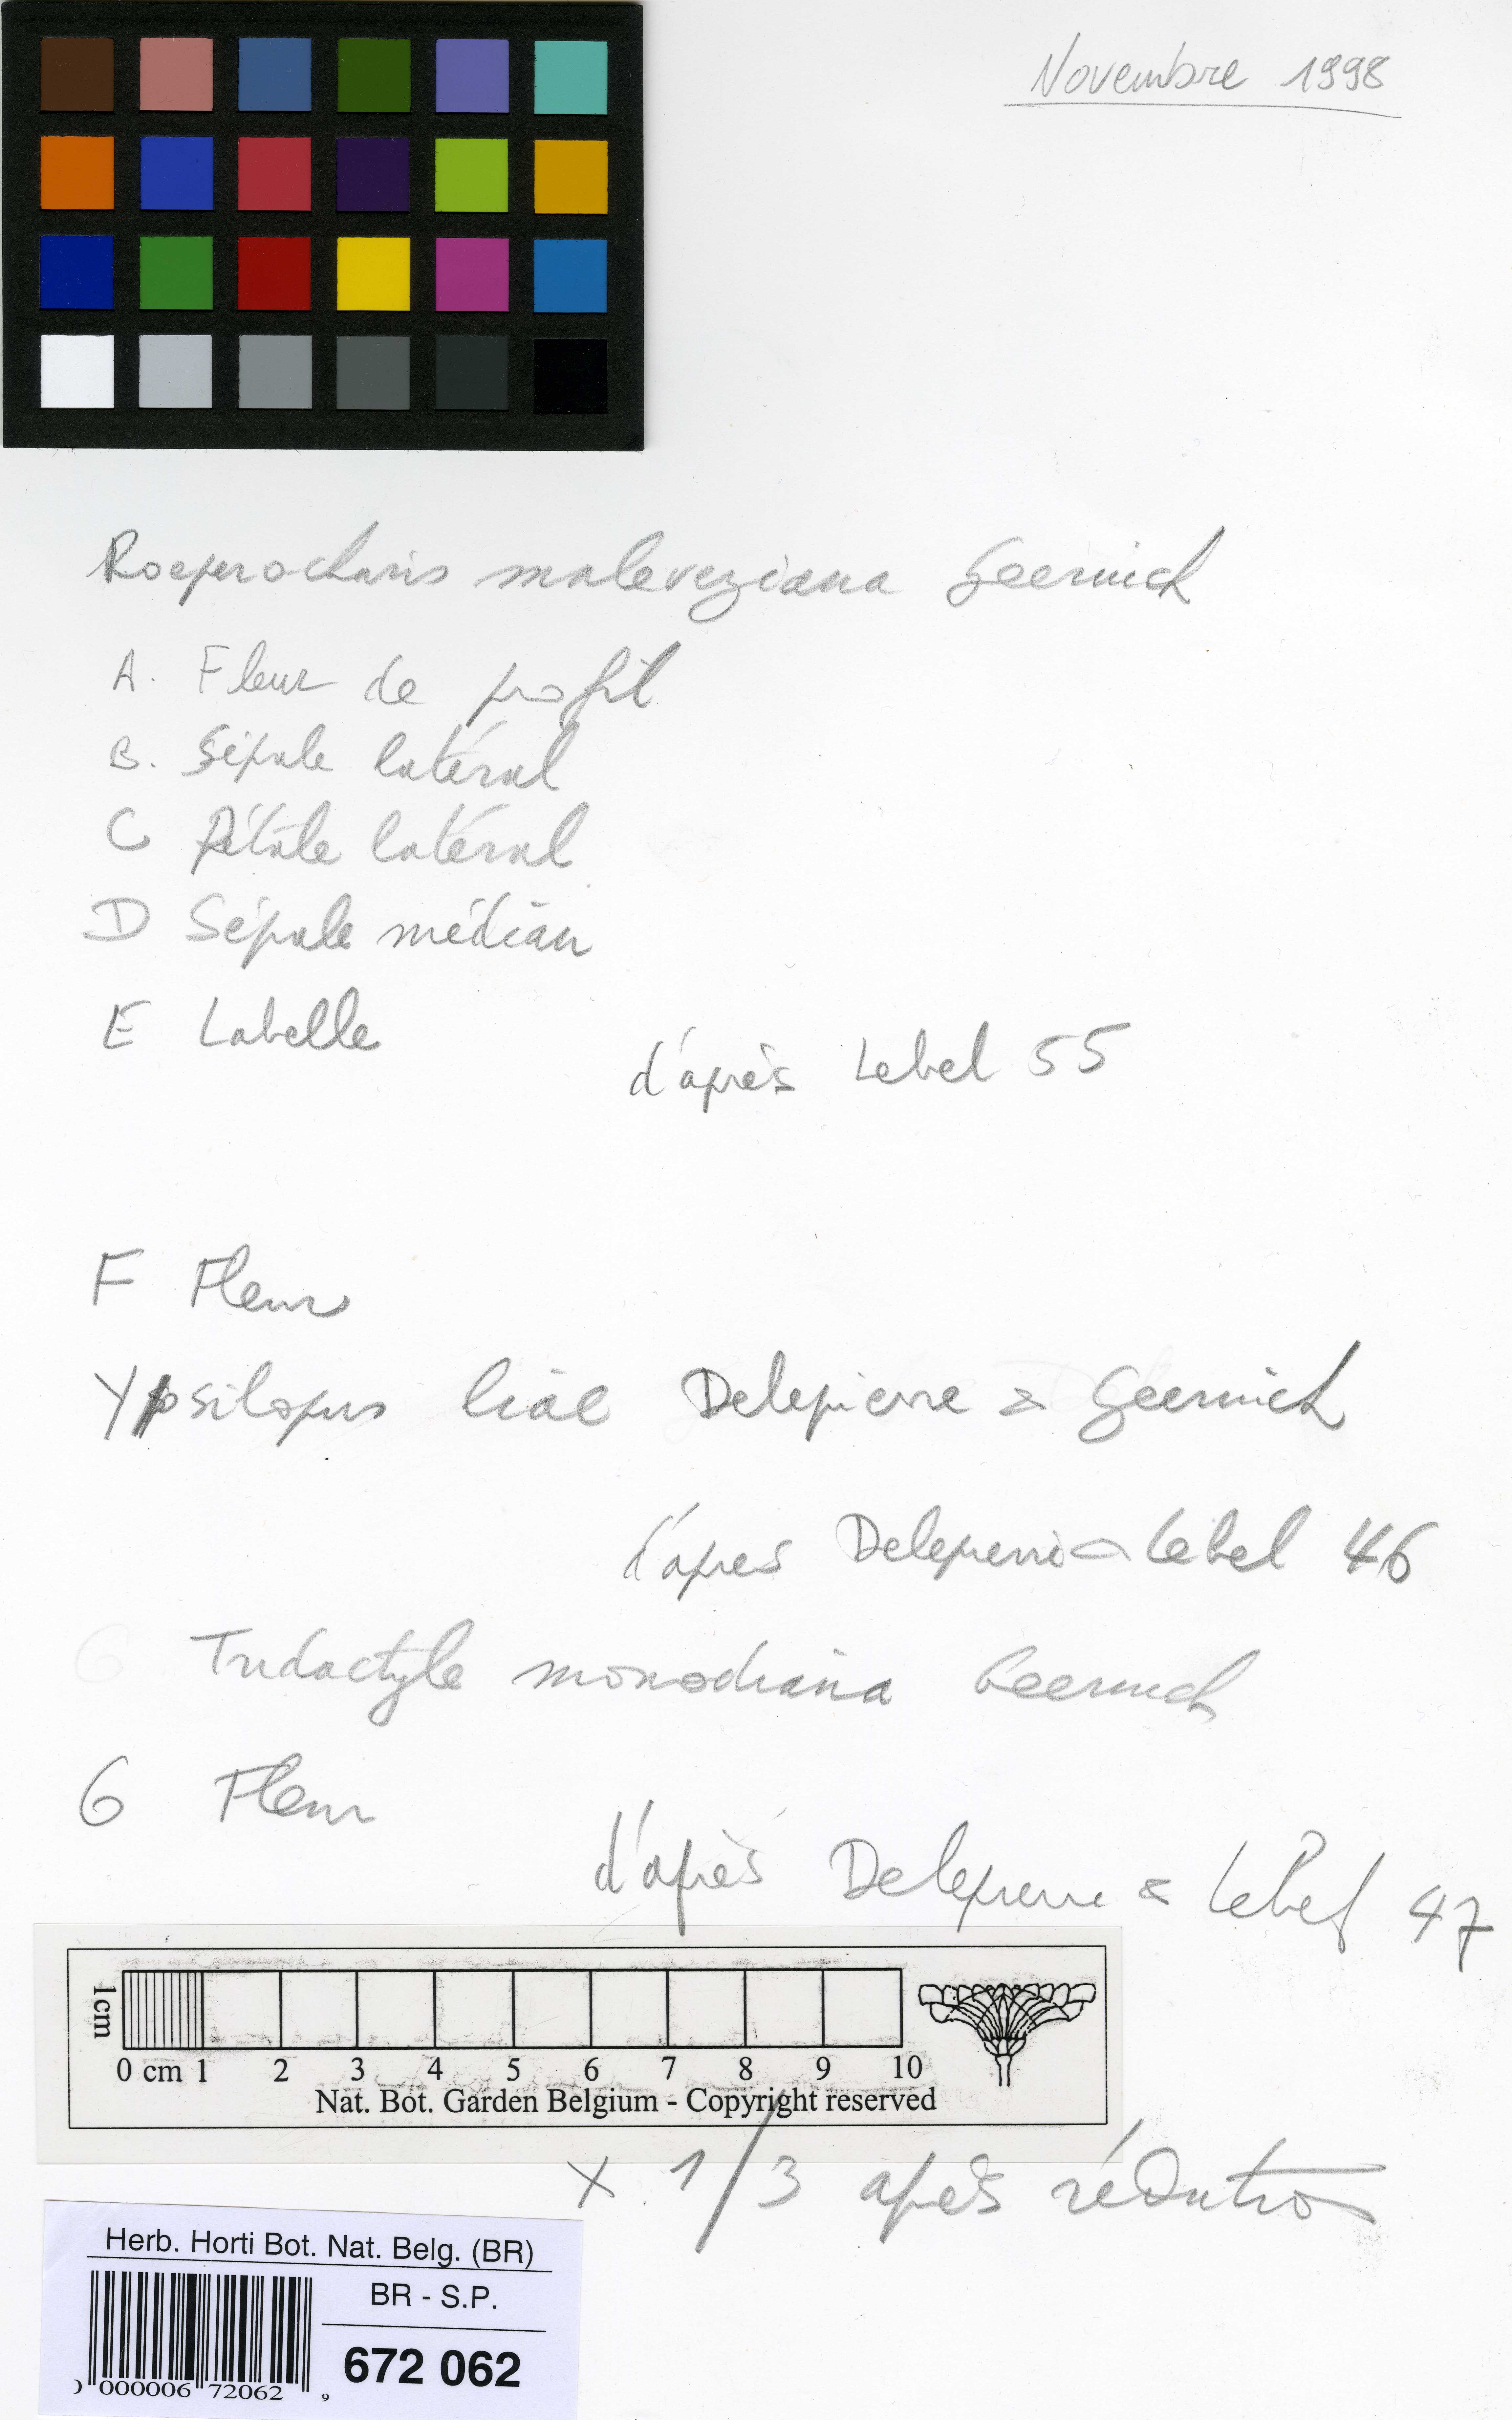 Novembre 1998
Roeperocharis maleveziana Geerinck
A. Fleur de profil
B. Sépale latéral
C Pétale latéral
D Sépale médian
E Labelle
d'après Lebel 55
F Fleur
Ypsilopus liae Delepierre & Geerinck
d'apres Delepierre & Lebel 46
G Tridactyle monodiana Geerinck
G Fleur
d'après Delepierre & Lebel 47
1cm
0 cm 1 2 3 4 5 6 7 8 9 10
Nat. Bot. Garden Belgium - Copyright reserved
x 1/3 après réduction
Herb. Horti Bot. Nat. Belg. (BR)
BR - S.P.
672 062
000006 72062 9